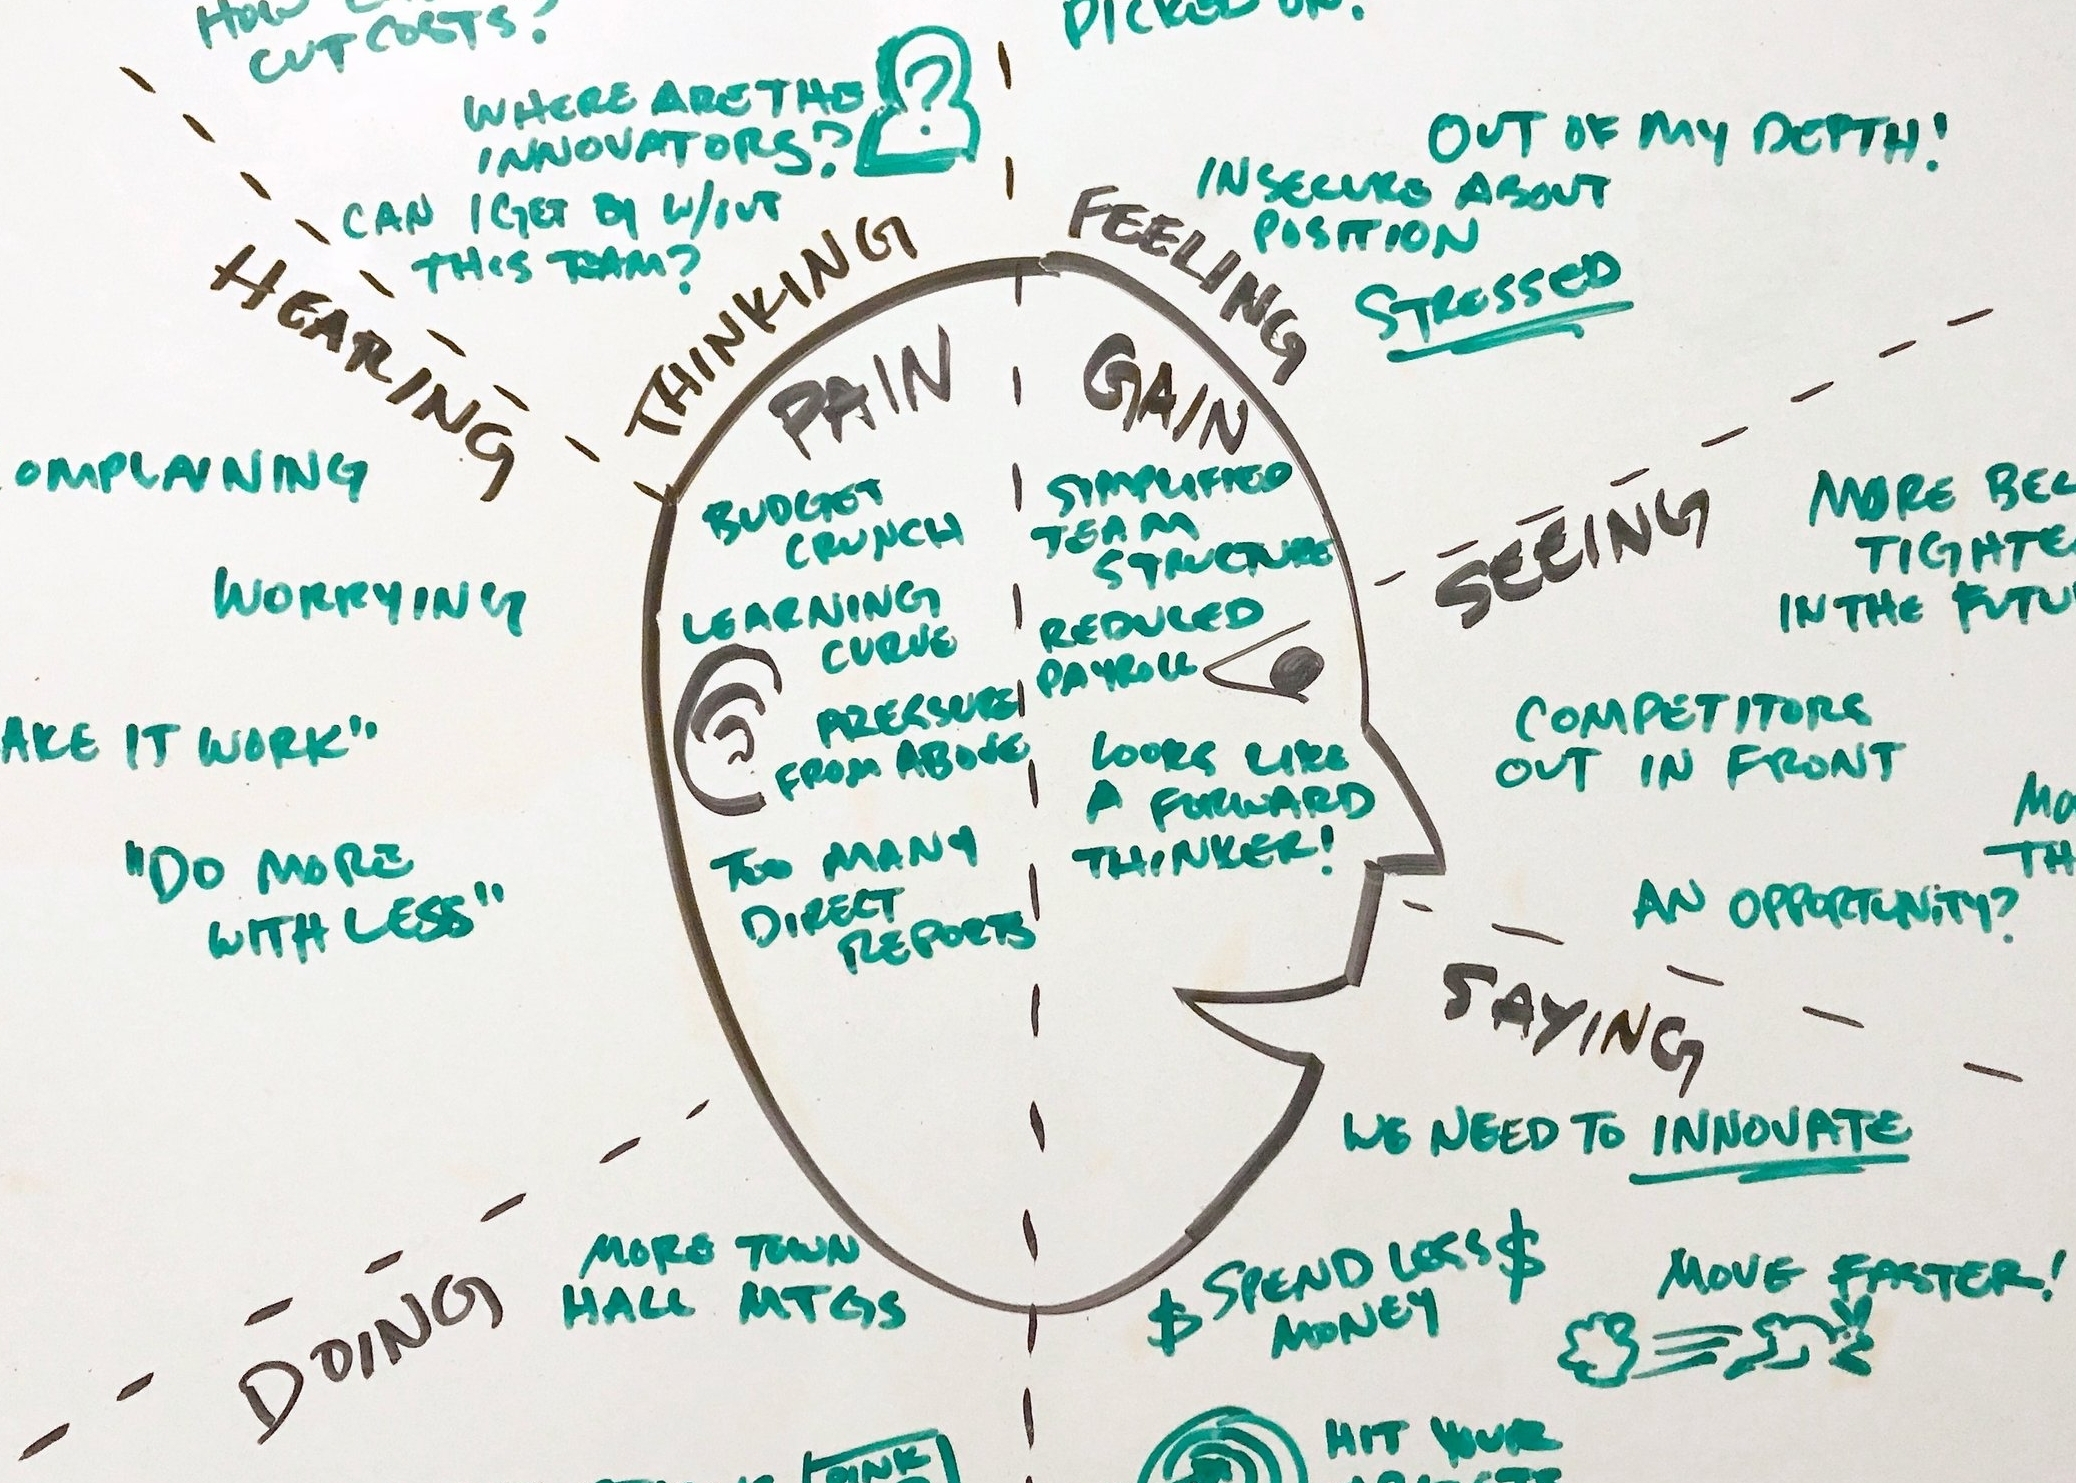 CUT COSTS?
PICKED ON!
WHERE ARE THE
INNOVATORS?
?
CAN I GET BY W/OUT
THIS TEAM?
THINKING
FEELING
OUT OF MY DEPTH!
INSECURE ABOUT
POSITION
STRESSED
HEARING
COMPLAINING
WORRYING
AKE IT WORK"
"DO MORE
WITH LESS"
PAIN
BUDGET
CRUNCH
LEARNING
CURVE
PRESSURE
FROM ABOVE
TOO MANY
DIRECT
REPORTS
GAIN
SIMPLIFIED
TEAM
STRUCTURE
REDUCED
PAYROLL
LOOKS LIKE
A FORWARD
THINKER!
SEEING
MORE BEL
TIGHTE
IN THE FUTU
COMPETITORS
OUT IN FRONT
MO
TH
AN OPPORTUNITY?
SAYING
WE NEED TO INNOVATE
$ SPEND LESS $
MONEY
MOVE FASTER!
HIT YOUR
DOING
MORE TOWN
HALL MTGS